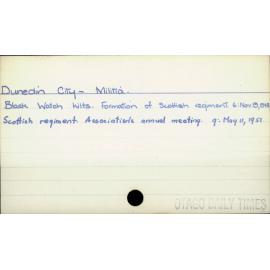 Dunedin City - Militia.
Black Watch kilts. Formation of Scottish regiment. 6: Nov 13, 1948
Scottish regiment Association's annual meeting. 9: May 11, 1951
OTAGO DAILY TIMES